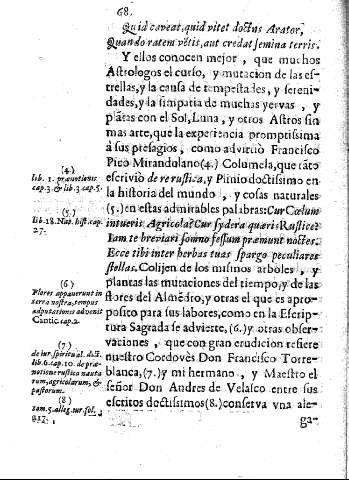 68.
Quid caveat, quid vitet doctus Arator,
Quando ratem vētis, aut credat semina terris.
Y ellos conocen mejor, que muchos
Astrologos el curso, y mutacion de las es-
trellas, y la causa de tempestades, y sereni-
dades, y la simpatia de muchas yervas, y
plātas con el Sol, Luna, y otros Astros sin
mas arte, que la experiencia promptissima
à sus presagios, como advirtiò Francisco
Pico Mirandulano (4.) Columela, que tāto
escriviò de re rustica, y Plinio doctissimo en
la historia del mundo, y cosas naturales
(5.) en estas admirables palabras: Cur Cœlum
intueris Agricola? Cur sydera quæris Rustice?
Iam te breviori somno fessum præmunt noctes.
Ecce tibi inter herbas tuas spargo peculiares
stellas. Colijen de los mismos arboles, y
plantas las mutaciones del tiempo, y de las
flores del Almēdro, y otras el que es apro-
posito para sus labores, como en la Escrip-
tura Sagrada se advierte, (6.) y otras obser-
vaciones, que con gran erudicion refiere
nuestro Cordovès Don Francisco Torre-
blanca, (7.) y mi hermano, y Maestro el
señor Don Andres de Velasco entre sus
escritos doctissimos (8.) conserva una ale-
ga-
(4.)
lib. 1. prænotionis
cap. 3. & lib. 3. cap. 5.
(5.)
lib. 18. Nat. hist. cap.
27.
(6.)
Flores apparuerunt in
terra nostra, tempus
adputationis advenit
Cantic. cap. 2.
(7.)
de iur. spiritual. dict.
lib. 6. cap. 10. de præ-
notione rustico nauta
rum, agricolarum, &
pastorum.
(8.)
tom. 5. alleg. iur. fol.
837.